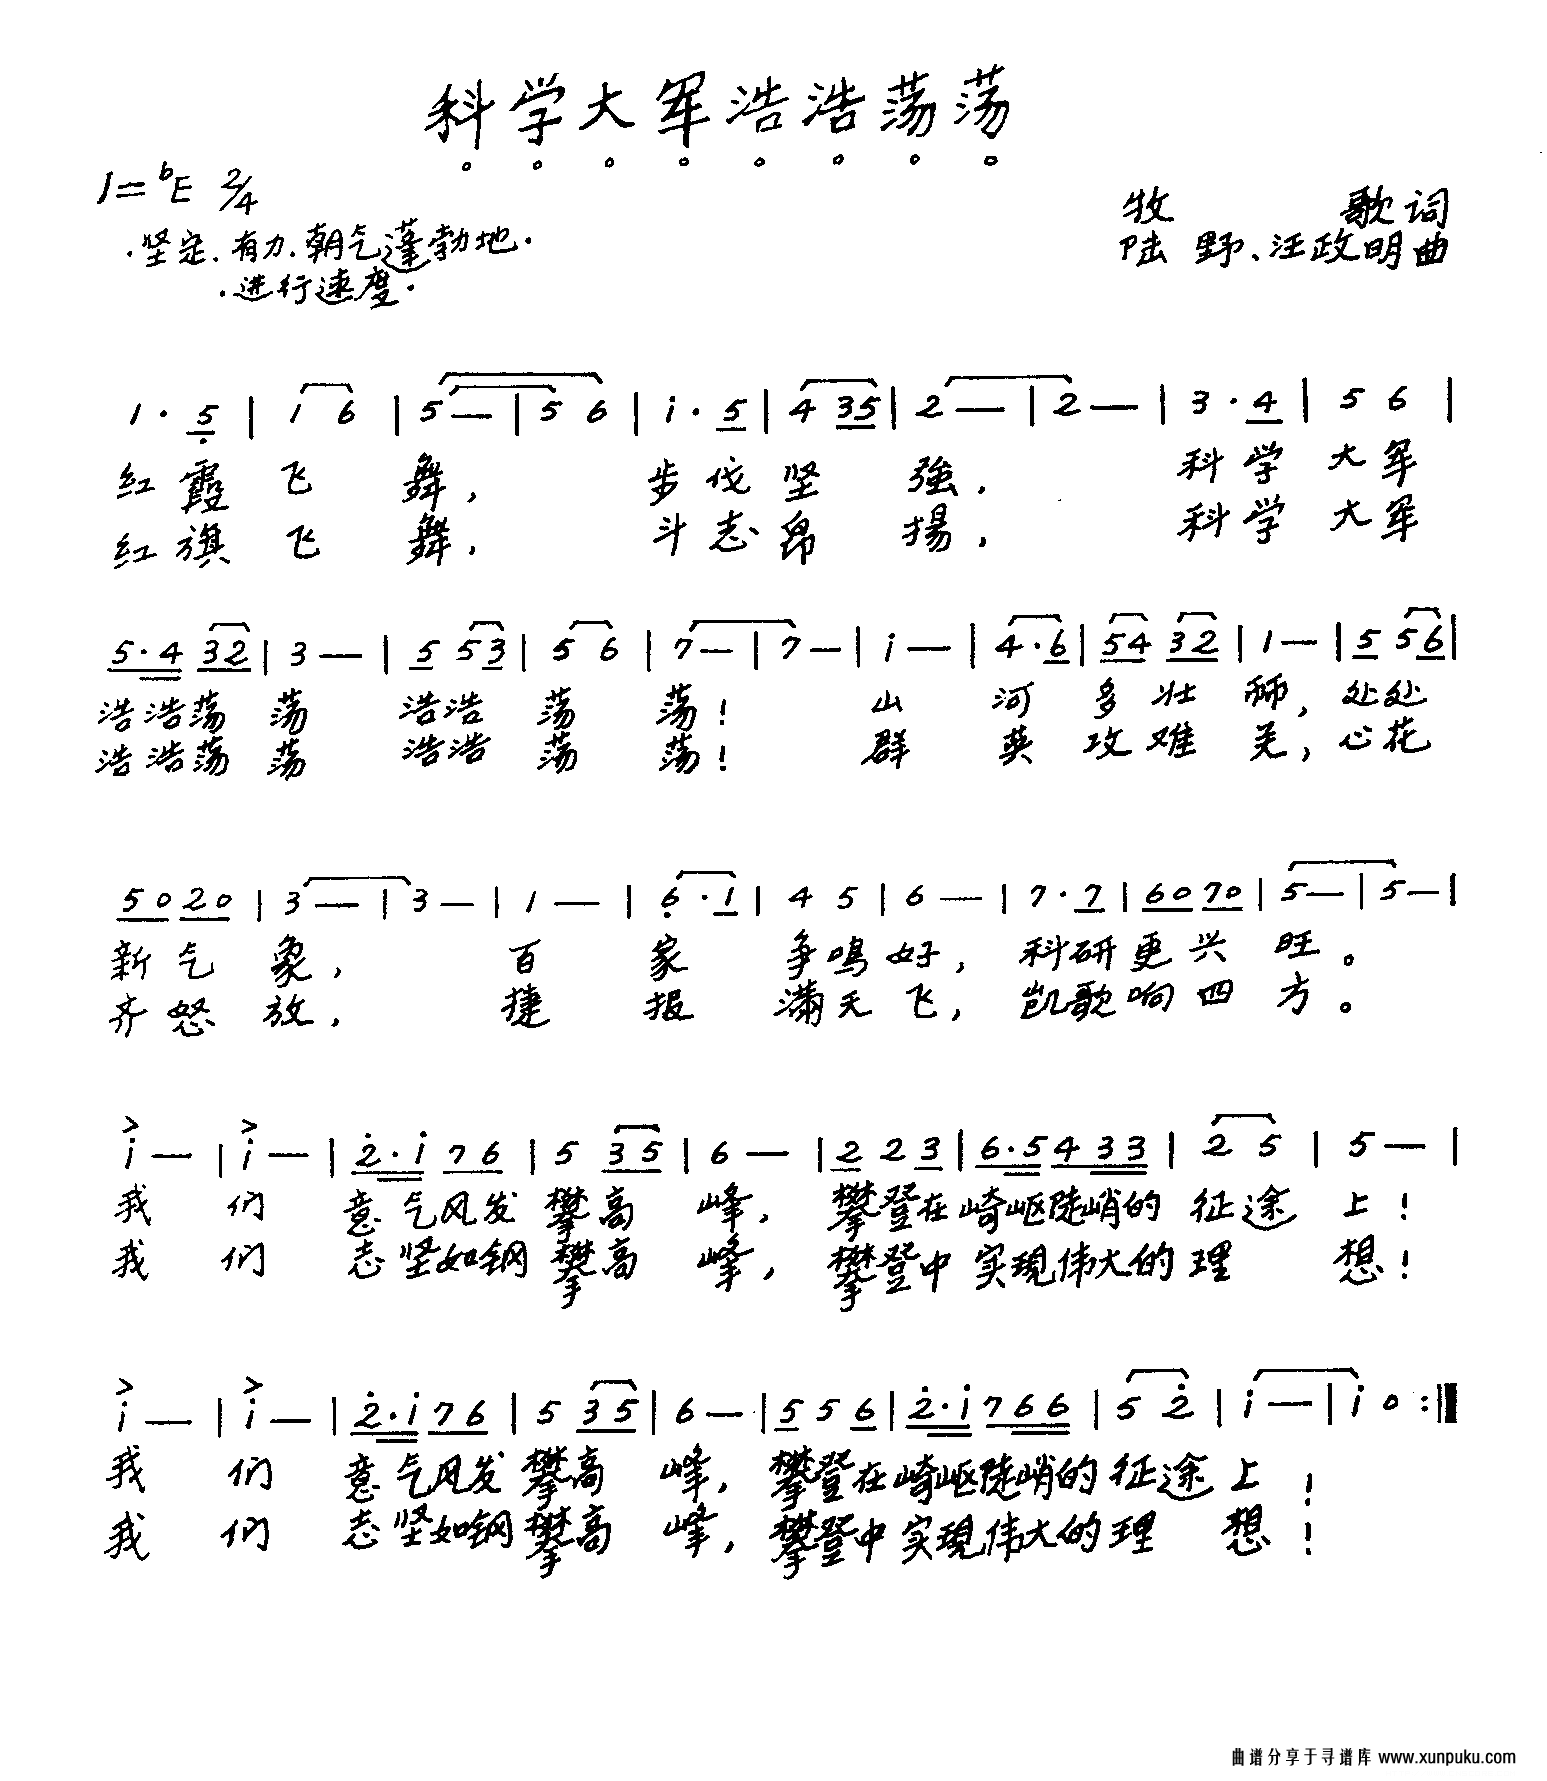 科学大军浩浩荡荡
1=ᵇE 2/4
·坚定、有力、朝气蓬勃地·
·进行速度·
牧 歌词
陆 野、汪政明曲
1· 5̣ | 1 6 | 5 — | 5 6 | i· 5 | 4 35 | 2 — | 2 — | 3· 4 | 5 6 |
红霞飞 舞, 步伐坚 強, 科学大军
红旗飞 舞, 斗志昂 揚, 科学大军
5·4 32 | 3 — | 5 53 | 5 6 | 7 — | 7 — | i — | 4·6 | 54 32 | 1 — | 5 56 |
浩浩荡 荡 浩浩 荡 荡! 山 河 多壮 丽, 处处
浩浩荡 荡 浩浩 荡 荡! 群 英 攻难 关, 心花
50 20 | 3 — | 3 — | 1 — | 6̣·1 | 4 5 | 6 — | 7·7 | 60 70 | 5 — | 5 — |
新气 象, 百 家 争鸣好, 科研更兴 旺。
齐怒 放, 捷 报 满天飞, 凯歌响四 方。
> i — | > i — | 2̇·i 76 | 5 35 | 6 — | 2 2 3 | 6·5 4 33 | 2 5 | 5 — |
我 们 意气风发攀高 峰, 攀登在崎岖陡峭的 征途 上!
我 们 志坚如钢攀高 峰, 攀登中实現伟大的理 想!
> i — | > i — | 2̇·i 76 | 5 35 | 6 — | 5 5 6 | 2̇·i 7 66 | 5 2̇ | i — | i 0 :‖
我 们 意气风发攀高 峰, 攀登在崎岖陡峭的征途上!
我 们 志坚如钢攀高 峰, 攀登中实現伟大的理 想!
曲谱分享于寻谱库 www.xunpuku.com